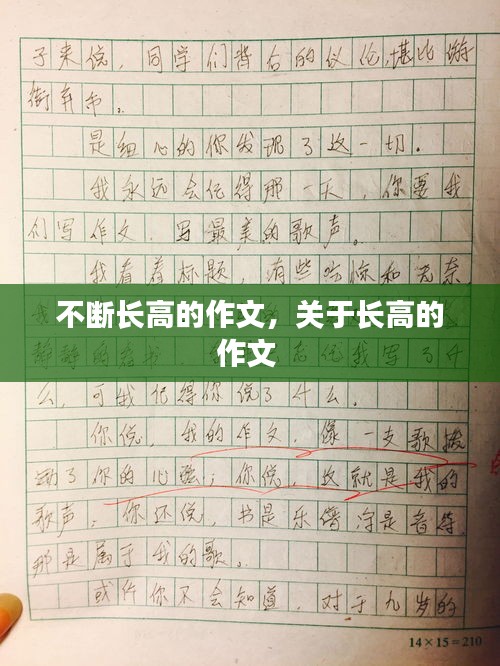 子来说，同学们背后的议论，堪比游
街弃市。
是细心的你发现了这一切。
我永远会记得那一天，你要我
们写作文，写最美的歌声。
我看着标题，有些惊和无奈，
不断长高的作文，关于长高的
作文
我写了什
么，可我记得你说了什么。
你说，我的作文，像一支歌拨
动了你的心弦；你说，这就是我的
歌声；你还说，书是乐谱，字是音符
那是属于我的歌。
或许你不会知道，对于九岁的
14×15=210